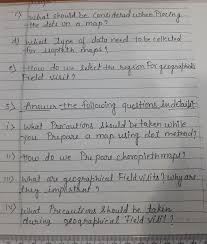 c) What should be considered when placing
the dots on a map?
d) Which type of data need to be collected
for isopleth maps?
e) How do we select the region for geographical
field visit?
5) Answer the following questions in short
i) What Precautions should be taken while
you Prepare a map using dot method?
ii) How do we Prepare choropleth maps?
iii) What are geographical field visits? Why are
they important?
iv) What Precautions should be taken
during geographical field visit?